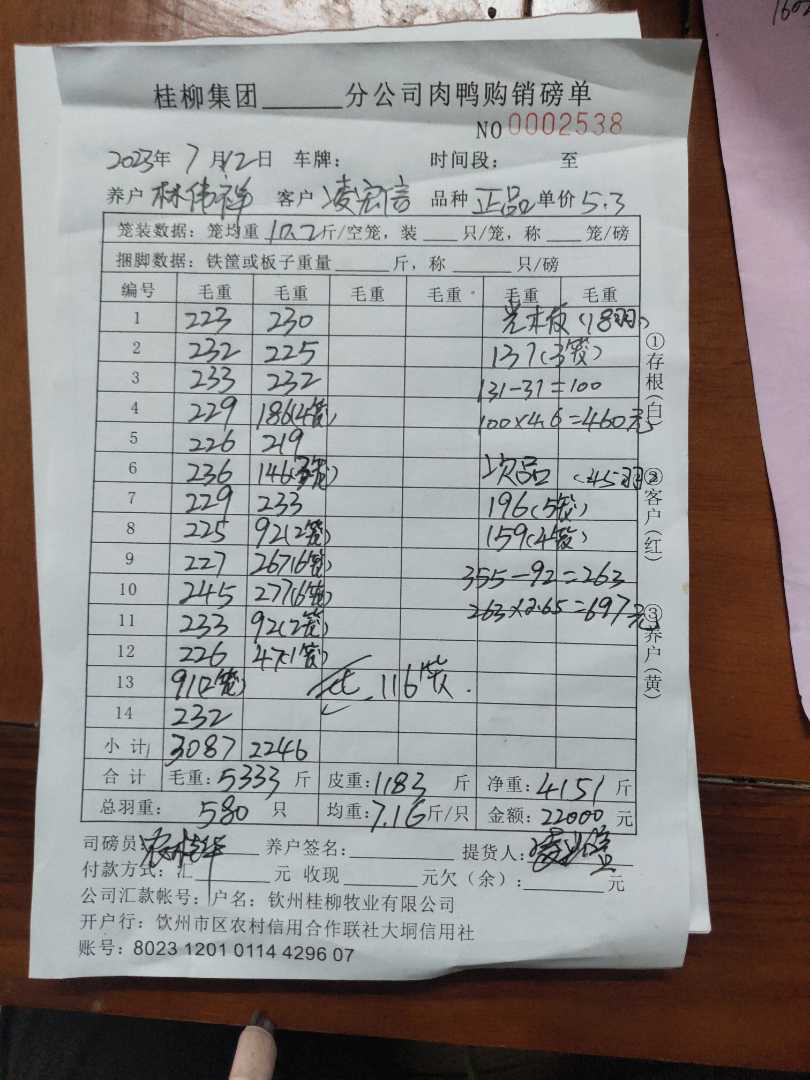 桂柳集团______分公司肉鸭购销磅单
NO 0002538
2023年 7月12日 车牌: 时间段: 至
养户 林伟祥 客户 凌宏信 品种 正品 单价 5.3
笼装数据: 笼均重 10.2 斤/空笼, 装___只/笼, 称___笼/磅
捆脚数据: 铁筐或板子重量______斤, 称______只/磅
编号 毛重 毛重 毛重 毛重 毛重 毛重
1 223 230 (18羽)
2 232 225 137(3笼)
3 233 232 131-31=100
4 229 186(4笼) 100×4.6=460元
5 226 219
6 236 146(3笼) 次品 (45羽)
7 229 233 196(5笼)
8 225 92(2笼) 159(4笼)
9 227 267(6笼) 355-92=263
10 245 277(6笼) 263×2.65=697元
11 233 92(2笼)
12 226 47(1笼)
13 91(2笼) 116笼.
14 232
小计 3087 2246
合计 毛重: 5333 斤 皮重: 1183 斤 净重: 4151 斤
总羽重: 580 只 均重: 7.16 斤/只 金额: 22000 元
司磅员: 养户签名: 提货人:
付款方式: 汇______元 收现______元欠(余):______元
公司汇款帐号: 户名: 钦州桂柳牧业有限公司
开户行: 饮州市区农村信用合作联社大垌信用社
账号: 8023 1201 0114 4296 07
①存根(白)
②客户(红)
③养户(黄)